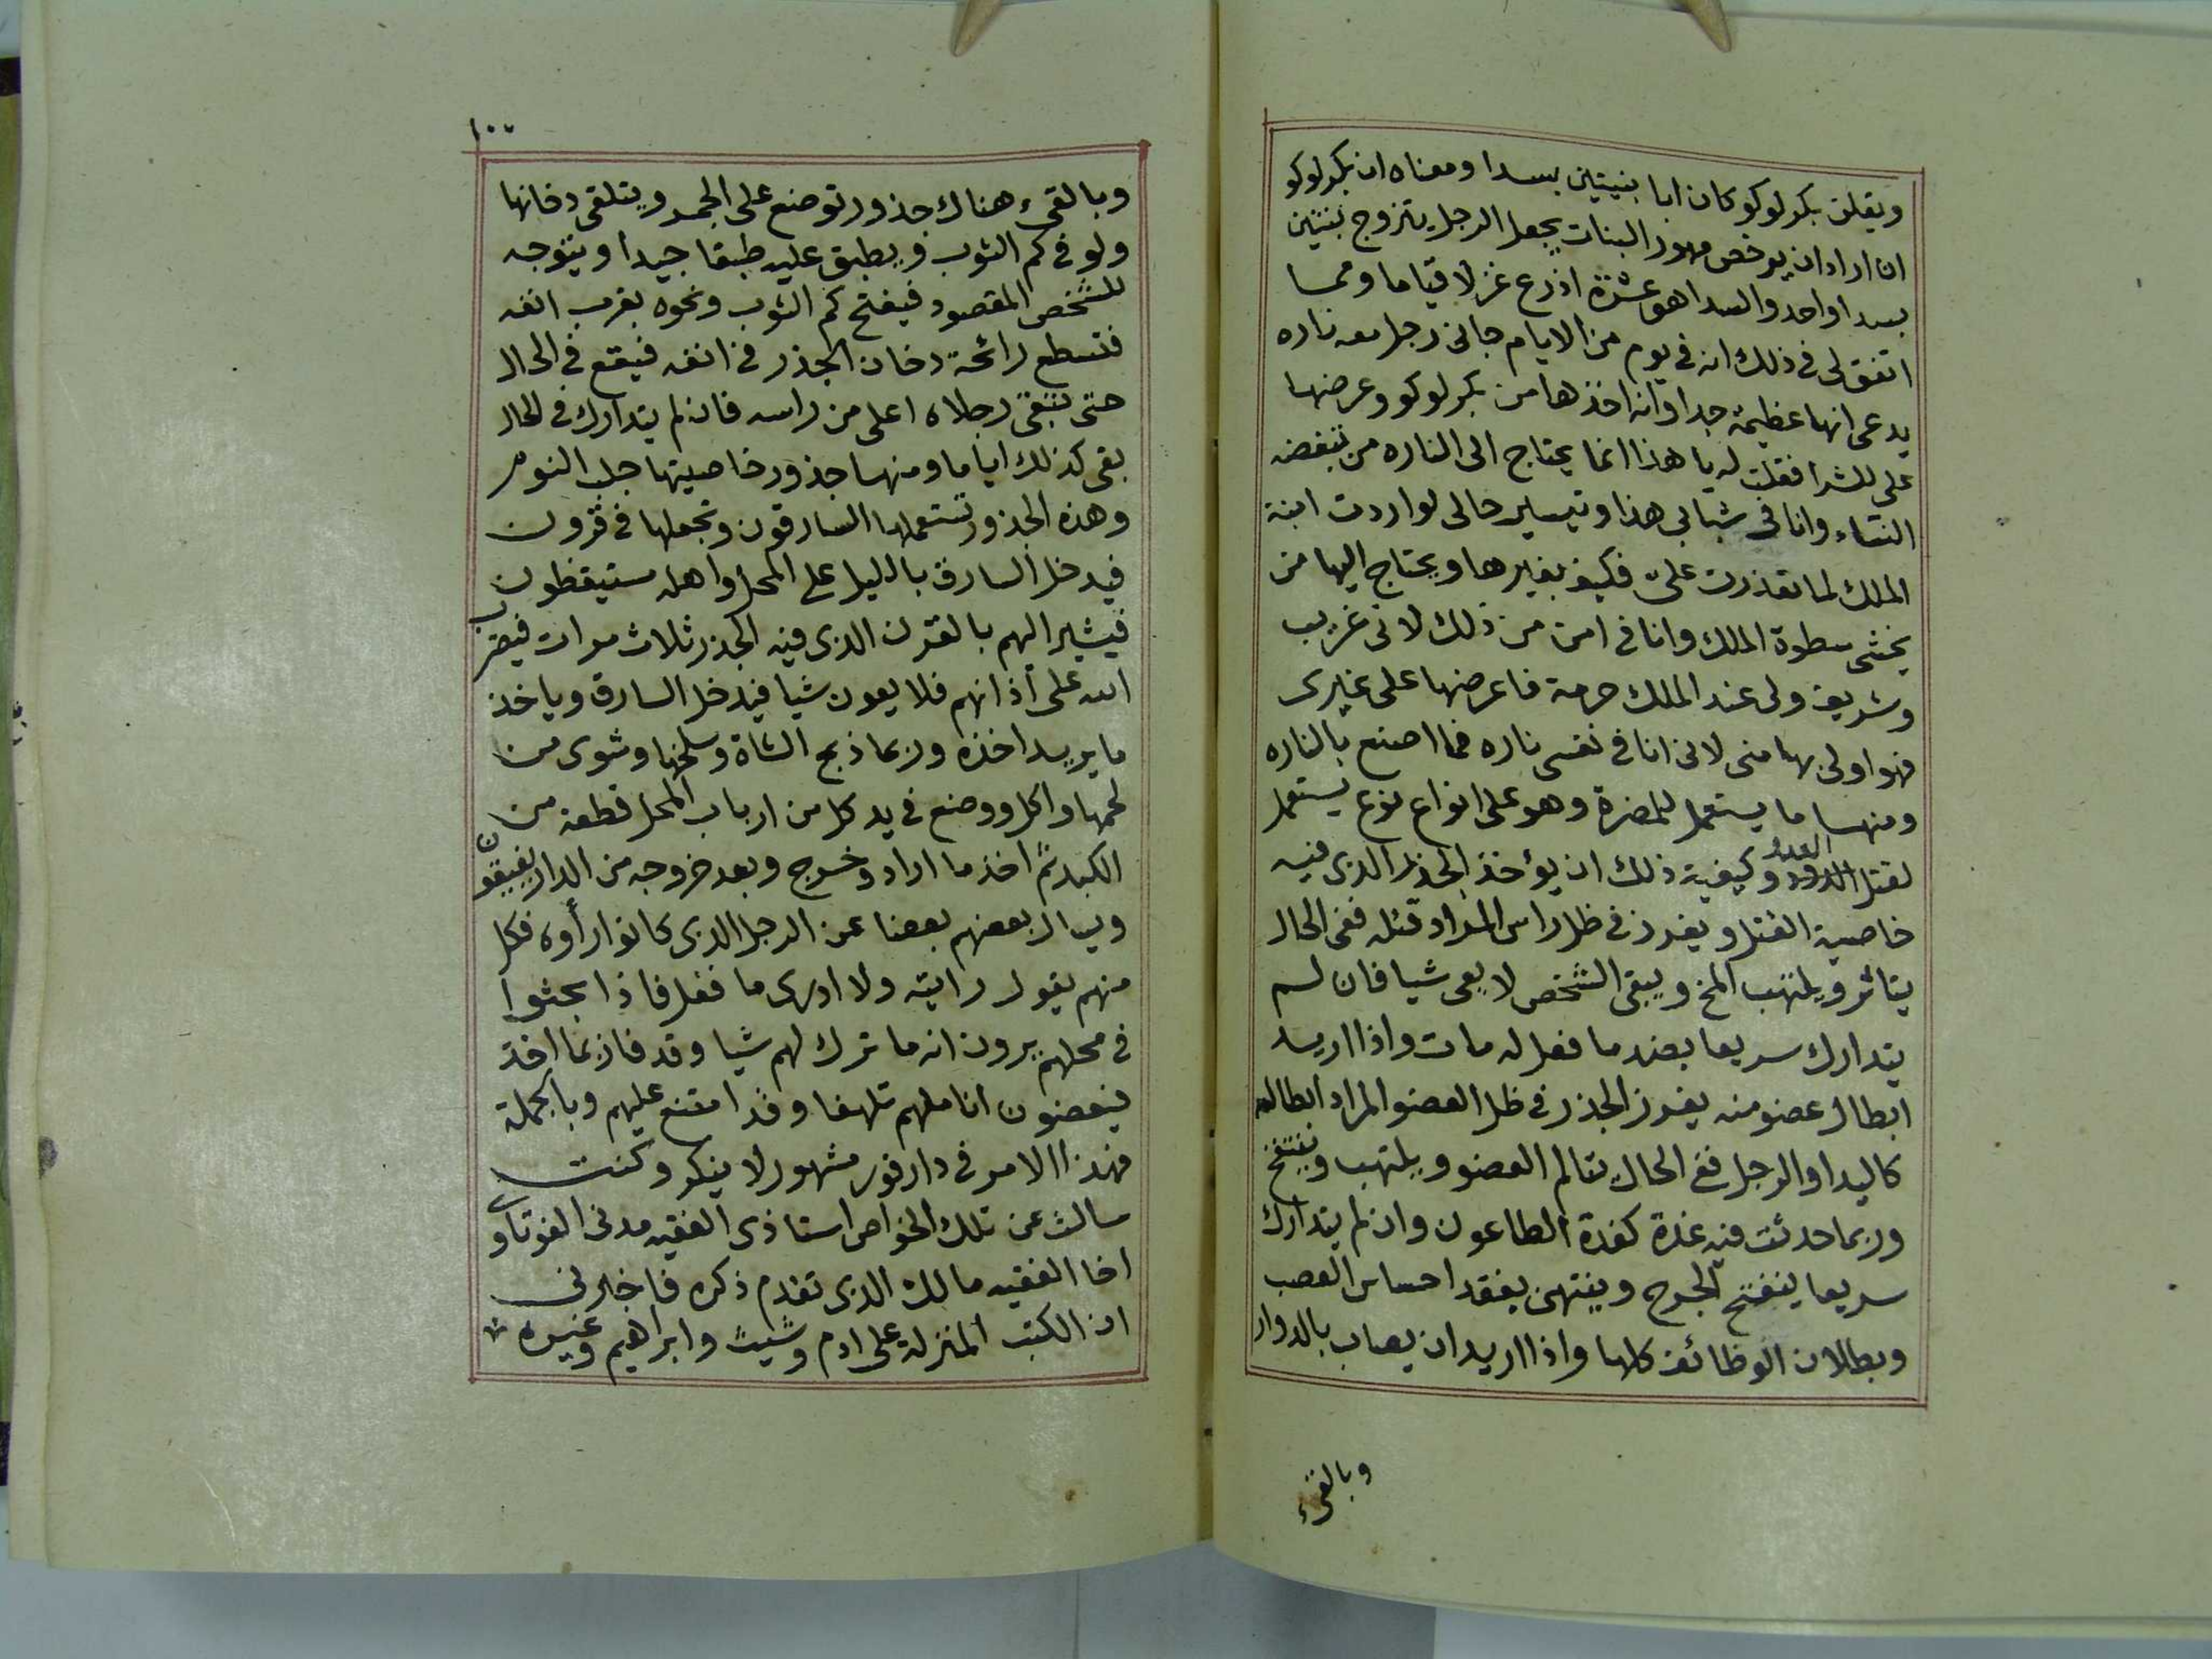 ويقلن بكر لوكو كان ابا بنيتين بسدا ومعناه ان بكر لوكو
ان اراد ان يرخص مهور البنات يجعل الرجل يتزوج بنتين
بسدا واحد والسدا هو عشرة اذرع غزلا قياما ومما
اتفق لى فى ذلك انه فى يوم من الايام جانى رجل معه ناره
يدعى انها عظيمة جدا وانه اخذها من بكر لوكو وعرضها
على للشرا فقلت له يا هذا انما يحتاج الى الناره من تبغضه
النساء وانا فى شبابى هذا وتيسير حالى لو اردت ابنة
الملك لما تعذرت علىّ فكيف بغيرها ويحتاج اليها من
يخشى سطوة الملك وانا فى امن من ذلك لانى غريب
وشريف ولى عند الملك حرمة فاعرضها على غيرى
فهو اولى بها منى لانى انا فى نفسى ناره فما اصنع بالناره
ومنها ما يستعمل للمضرة وهو على انواع نوع يستعمل
لقتل العدو وكيفية ذلك ان يؤخذ الجذر الذى فيه
خاصية القتل ويغرز فى ظل راس المراد قتله ففى الحال
يتاثر ويلتهب المخ ويبقى الشخص لا يعى شيا فان لم
يتدارك سريعا بضد ما فعل له مات واذا اريد
ابطال عضو منه يغرز الجذر فى ظل العضو المراد ابطاله
كاليد او الرجل ففى الحال يتالم العضو ويلتهب وينتفخ
وربما حدثت فيه غدة كغدة الطاعون وان لم يتدارك
سريعا ينفتح الجرح وينتهى بفقد احساس العصب
وبطلان الوظائف كلها واذا اريد ان يصاب بالدوار
وبالقىء
١٠٠
وبالقىء هناك جذور توضع على الجمر ويتلقى دخانها
ولو فى كم الثوب ويطبق عليه طبقا جيدا ويتوجه
للشخص المقصود فيفتح كم الثوب ونحوه بقرب انفه
فتسطع رائحة دخان الجذر فى انفه فيقع فى الحال
حتى تبقى رجلاه اعلى من راسه فان لم يتدارك فى الحال
بقى كذلك اياما ومنها جذور خاصيتها جلب النوم
وهذه الجذور تستعملها السارقون وتجعلها فى قرون
فيدخل السارق بالليل على المحل واهله مستيقظون
فيشير اليهم بالقرن الذى فيه الجذر ثلاث مرات فيضرب
الله على آذانهم فلا يعون شيا فيدخل السارق وياخذ
ما يريد اخذه وربما ذبح الشاة وسلخها وشوى من
لحمها واكل ووضع فى يد كل من ارباب المحل قطعة من
الكبد ثم اخذ ما اراد وخرج وبعد خروجه من الدار يفيقون
ويسال بعضهم بعضا عن الرجل الذى كانوا رأوه فكل
منهم يقول رايته ولا ادرى ما فعل فاذا بحثوا
فى محلهم يرون انه ما ترك لهم شيا وقد فاز بما اخذ
فيعضون اناملهم تلهفا وقد امتنع عليهم وبالجملة
فهذا الامر فى دارفور مشهور لا ينكر وكنت
سالت عن تلك الخواص استاذى الفقيه مدنى الفوتاوى
اخا الفقيه مالك الذى تقدم ذكره فاخبرنى
ان الكتب المنزلة على ادم وشيث وابراهيم وغيره